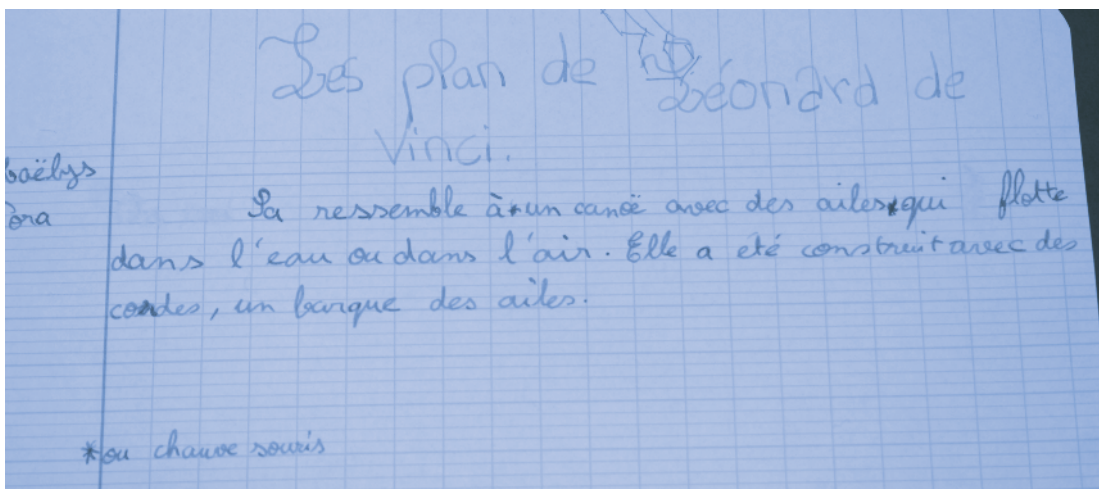 Les plan de Léonard de
Vinci.
Sa ressemble à un canoë avec des ailes*qui flotte
dans l'eau ou dans l'air. Elle a eté construit avec des
cordes, un barque des ailes.
*ou chauve souris